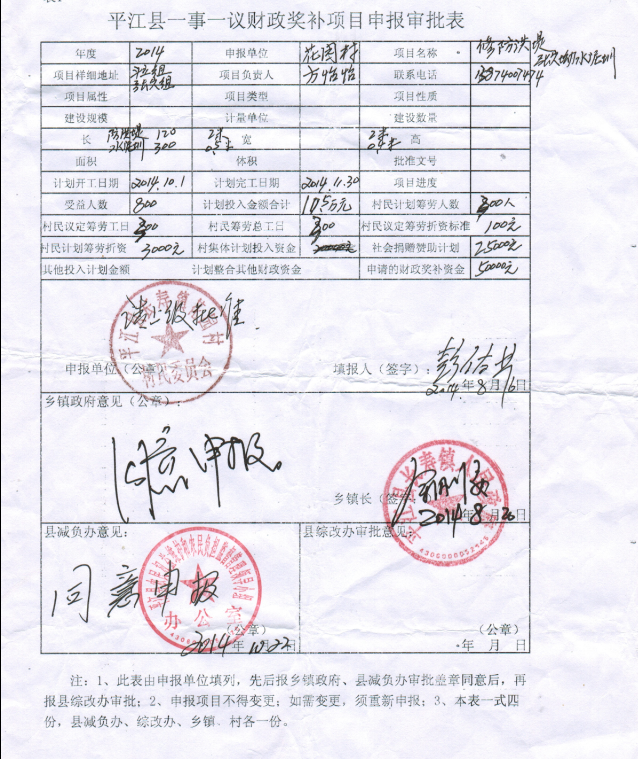 平江县一事一议财政奖补项目申报审批表
年度 2014 申报单位 花园村 项目名称 修防洪堤
项目祥细地址 项目负责人 方怡怡 联系电话 13974007474
项目属性 项目类型 项目性质
建设规模 计量单位 建设数量
长 防洪堤 120 宽 高
水圳 300 0.5米 0.5米
面积 体积 批准文号
计划开工日期 2014.10.1 计划完工日期 2014.11.30 项目进度
受益人数 800 计划投入金额合计 10.5万元 村民计划筹劳人数 300人
村民议定筹劳工日 300 村民筹劳总工日 300 村民议定筹劳折资标准 100元
村民计划筹劳折资 3000元 村集体计划投入资金 社会捐赠赞助计划 25000元
其他投入计划金额 计划整合其他财政资金 申请的财政奖补资金 50000元
请上级批准.
申报单位（公章） 填报人（签字）：
村民委员会
2014年8月16日
乡镇政府意见（公章）：
同意申报。
乡镇长（签字）
2014年8月20日
县减负办意见： 县综改办审批意见：
同意申报
办公室
（公章） （公章）
2014年10.22 年 月 日
注：1、此表由申报单位填列，先后报乡镇政府、县减负办审批盖章同意后，再
报县综改办审批；2、申报项目不得变更；如需变更，须重新申报；3、本表一式四
份，县减负办、综改办、乡镇、村各一份。